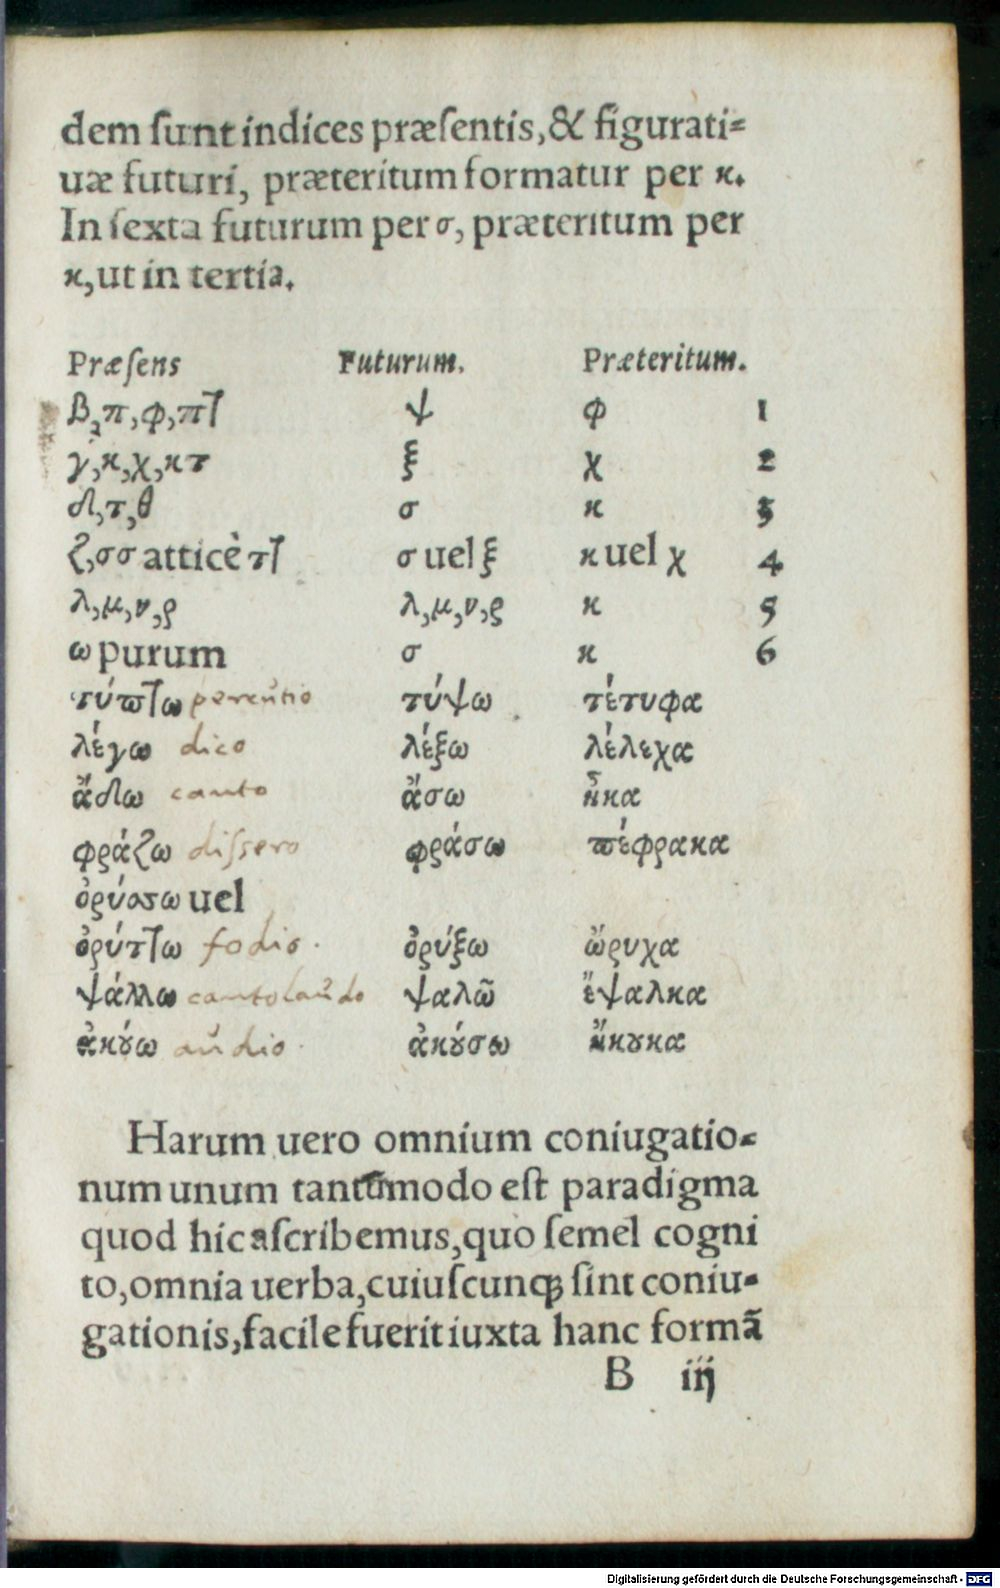 dem sunt indices præsentis, & figurati-
uæ futuri, præteritum formatur per κ.
In sexta futurum per σ, præteritum per
κ, ut in tertia.
Præsens Futurum. Præteritum.
β, π, φ, πτ ψ φ 1
γ, κ, χ, κτ ξ χ 2
δ, τ, θ σ κ 3
ζ, σσ atticè ττ σ uel ξ κ uel χ 4
λ, μ, ν, ρ λ, μ, ν, ρ κ 5
ω purum σ κ 6
τύπτω percutio τύψω τέτυφα
λέγω dico λέξω λέλεχα
ἄδω canto ἄσω ἦκα
φράζω dissero φράσω πέφρακα
ὀρύσσω uel
ὀρύττω fodio. ὀρύξω ὤρυχα
ψάλλω canto laudo ψαλῶ ἔψαλκα
ἀκούω audio. ἀκούσω ἤκουκα
Harum uero omnium coniugatio-
num unum tantūmodo est paradigma
quod hic ascribemus, quo semel cogni
to, omnia uerba, cuiuscunq; sint coniu-
gationis, facile fuerit iuxta hanc formā
B iij
Digitalisierung gefördert durch die Deutsche Forschungsgemeinschaft - DFG